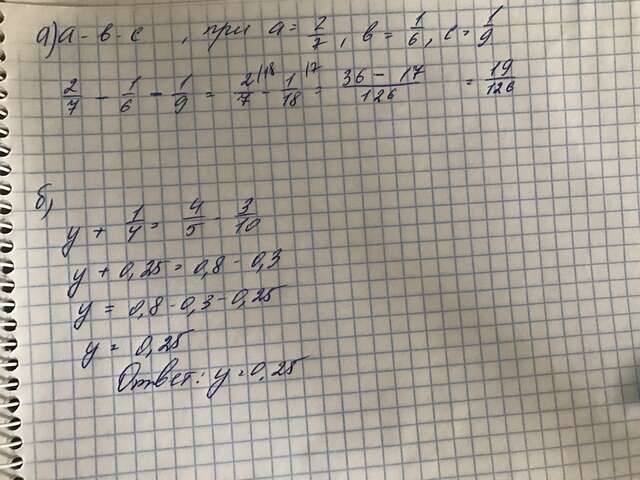 а) a - b - c, при a = 2/7, b = 1/6, c = 1/9
2/7 - 1/6 - 1/9 = 2/7 - 1/18 = (36 - 17)/126 = 19/126
б)
y + 1/4 = 4/5 - 3/10
y + 0,25 = 0,8 - 0,3
y = 0,8 - 0,3 - 0,25
y = 0,25
Ответ: y = 0,25